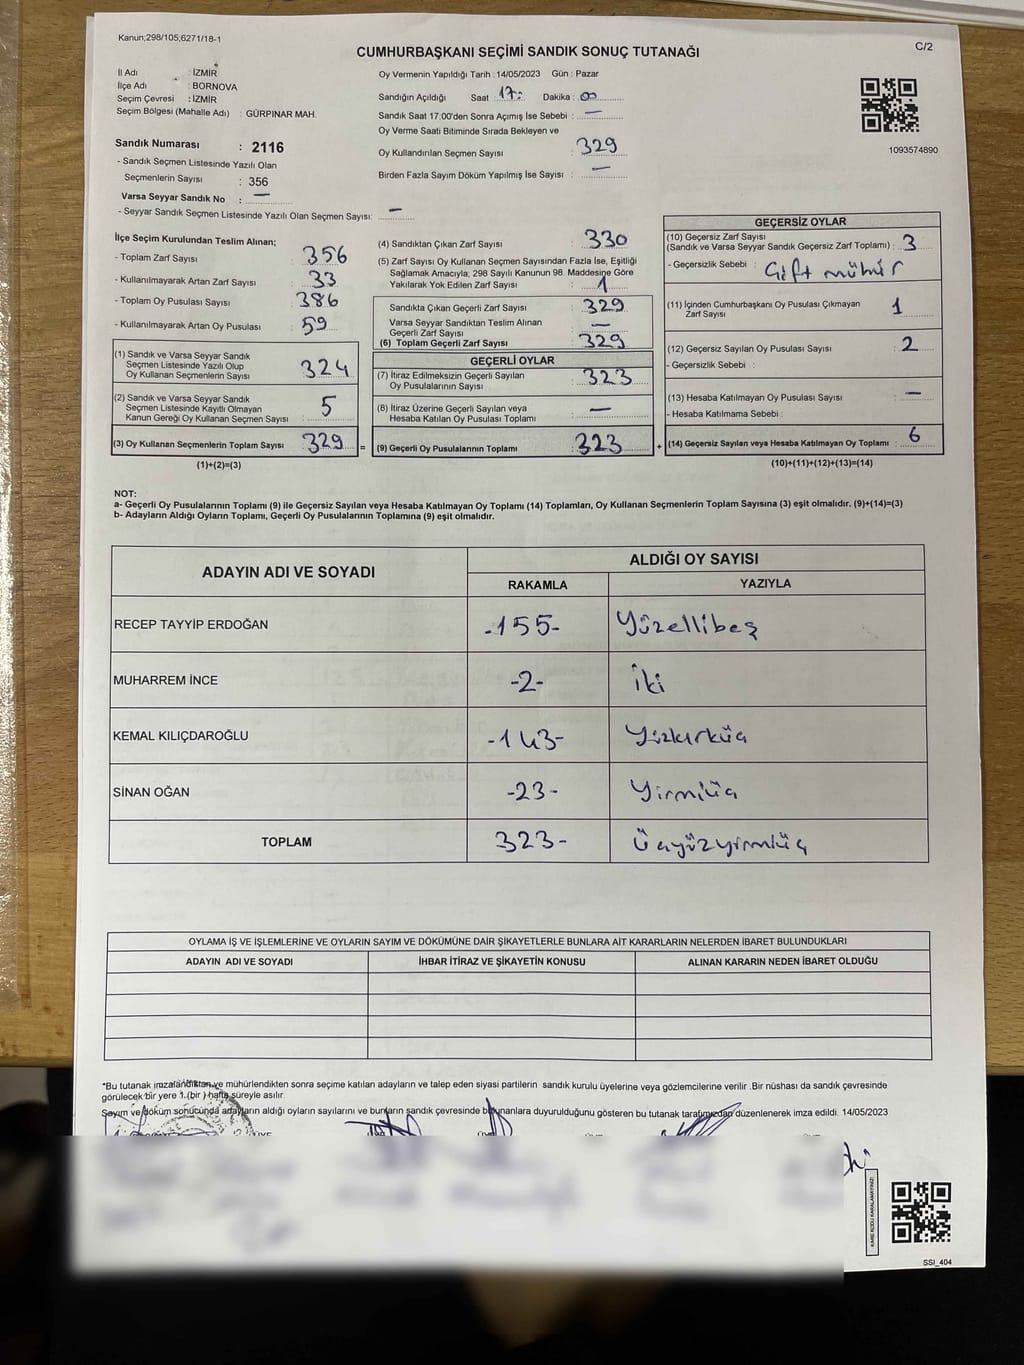 Kanun;298/105;6271/18-1
C/2
CUMHURBAŞKANI SEÇİMİ SANDIK SONUÇ TUTANAĞI
İl Adı : İZMİR
İlçe Adı : BORNOVA
Seçim Çevresi : İZMİR
Seçim Bölgesi (Mahalle Adı) : GÜRPINAR MAH.
Sandık Numarası : 2116
- Sandık Seçmen Listesinde Yazılı Olan
Seçmenlerin Sayısı : 356
Varsa Seyyar Sandık No : —
- Seyyar Sandık Seçmen Listesinde Yazılı Olan Seçmen Sayısı: —
Oy Vermenin Yapıldığı Tarih : 14/05/2023 Gün : Pazar
Sandığın Açıldığı Saat : 17: Dakika : 00
Sandık Saat 17.00'den Sonra Açımış İse Sebebi : —
Oy Verme Saati Bitiminde Sırada Bekleyen ve
Oy Kullandırılan Seçmen Sayısı : 329
Birden Fazla Sayım Döküm Yapılmış İse Sayısı : —
1093574890
İlçe Seçim Kurulundan Teslim Alınan;
- Toplam Zarf Sayısı : 356
- Kullanılmayarak Artan Zarf Sayısı : 33
- Toplam Oy Pusulası Sayısı : 386
- Kullanılmayarak Artan Oy Pusulası : 59
(1) Sandık ve Varsa Seyyar Sandık
Seçmen Listesinde Yazılı Olup
Oy Kullanan Seçmenlerin Sayısı : 324
(2) Sandık ve Varsa Seyyar Sandık
Seçmen Listesinde Kayıtlı Olmayan
Kanun Gereği Oy Kullanan Seçmen Sayısı : 5
(3) Oy Kullanan Seçmenlerin Toplam Sayısı : 329 =
(1)+(2)=(3)
(4) Sandıktan Çıkan Zarf Sayısı : 330
(5) Zarf Sayısı Oy Kullanan Seçmen Sayısından Fazla İse, Eşitliği
Sağlamak Amacıyla; 298 Sayılı Kanunun 98. Maddesine Göre
Yakılarak Yok Edilen Zarf Sayısı : 1
Sandıkta Çıkan Geçerli Zarf Sayısı : 329
Varsa Seyyar Sandıktan Teslim Alınan
Geçerli Zarf Sayısı : —
(6) Toplam Geçerli Zarf Sayısı : 329
GEÇERLİ OYLAR
(7) İtiraz Edilmeksizin Geçerli Sayılan
Oy Pusulalarının Sayısı : 323
(8) İtiraz Üzerine Geçerli Sayılan veya
Hesaba Katılan Oy Pusulası Toplamı : —
(9) Geçerli Oy Pusulalarının Toplamı : 323 +
GEÇERSİZ OYLAR
(10) Geçersiz Zarf Sayısı
(Sandık ve Varsa Seyyar Sandık Geçersiz Zarf Toplamı) : 3
- Geçersizlik Sebebi : Çift mühür
(11) İçinden Cumhurbaşkanı Oy Pusulası Çıkmayan
Zarf Sayısı : 1
(12) Geçersiz Sayılan Oy Pusulası Sayısı : 2
- Geçersizlik Sebebi :
(13) Hesaba Katılmayan Oy Pusulası Sayısı : —
- Hesaba Katılmama Sebebi :
(14) Geçersiz Sayılan veya Hesaba Katılmayan Oy Toplamı : 6
(10)+(11)+(12)+(13)=(14)
NOT:
a- Geçerli Oy Pusulalarının Toplamı (9) ile Geçersiz Sayılan veya Hesaba Katılmayan Oy Toplamı (14) Toplamları, Oy Kullanan Seçmenlerin Toplam Sayısına (3) eşit olmalıdır. (9)+(14)=(3)
b- Adayların Aldığı Oyların Toplamı, Geçerli Oy Pusulalarının Toplamına (9) eşit olmalıdır.
ADAYIN ADI VE SOYADI
ALDIĞI OY SAYISI
RAKAMLA YAZIYLA
RECEP TAYYİP ERDOĞAN -155- Yüzellibeş
MUHARREM İNCE -2- İki
KEMAL KILIÇDAROĞLU -143- Yüzkırküç
SİNAN OĞAN -23- Yirmiüç
TOPLAM 323- Üçyüzyirmiüç
OYLAMA İŞ VE İŞLEMLERİNE VE OYLARIN SAYIM VE DÖKÜMÜNE DAİR ŞİKAYETLERLE BUNLARA AİT KARARLARIN NELERDEN İBARET BULUNDUKLARI
ADAYIN ADI VE SOYADI İHBAR İTİRAZ VE ŞİKAYETİN KONUSU ALINAN KARARIN NEDEN İBARET OLDUĞU
*Bu tutanak imzalandıktan ve mühürlendikten sonra seçime katılan adayların ve talep eden siyasi partilerin sandık kurulu üyelerine veya gözlemcilerine verilir .Bir nüshası da sandık çevresinde
görülecek bir yere 1.(bir ) hafta süreyle asılır.
Sayım ve döküm sonucunda adayların aldığı oyların sayılarını ve bunların sandık çevresinde bulunanlara duyurulduğunu gösteren bu tutanak tarafımızdan düzenlenerek imza edildi. 14/05/2023
KARE KODU KARALAMAYINIZ!
SSI_404